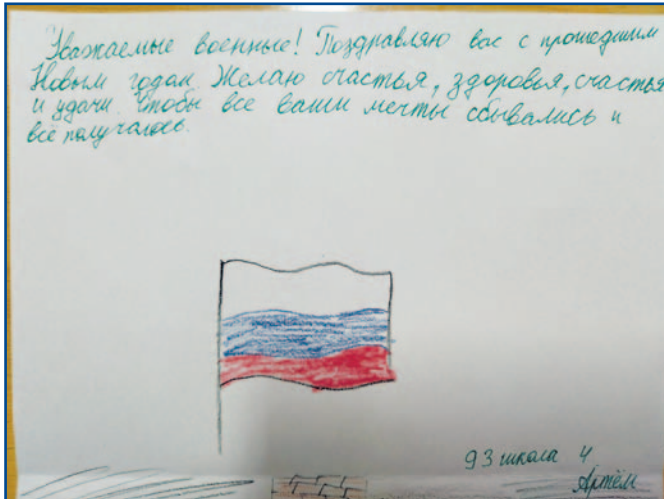 Уважаемые военные! Поздравляю вас с прошедшим
Новым годам. Желаю счастья, здоровья, счастья
и удачи. Чтобы все ваши мечты сбывались и
всё получалось.
93 школа 4
Артём